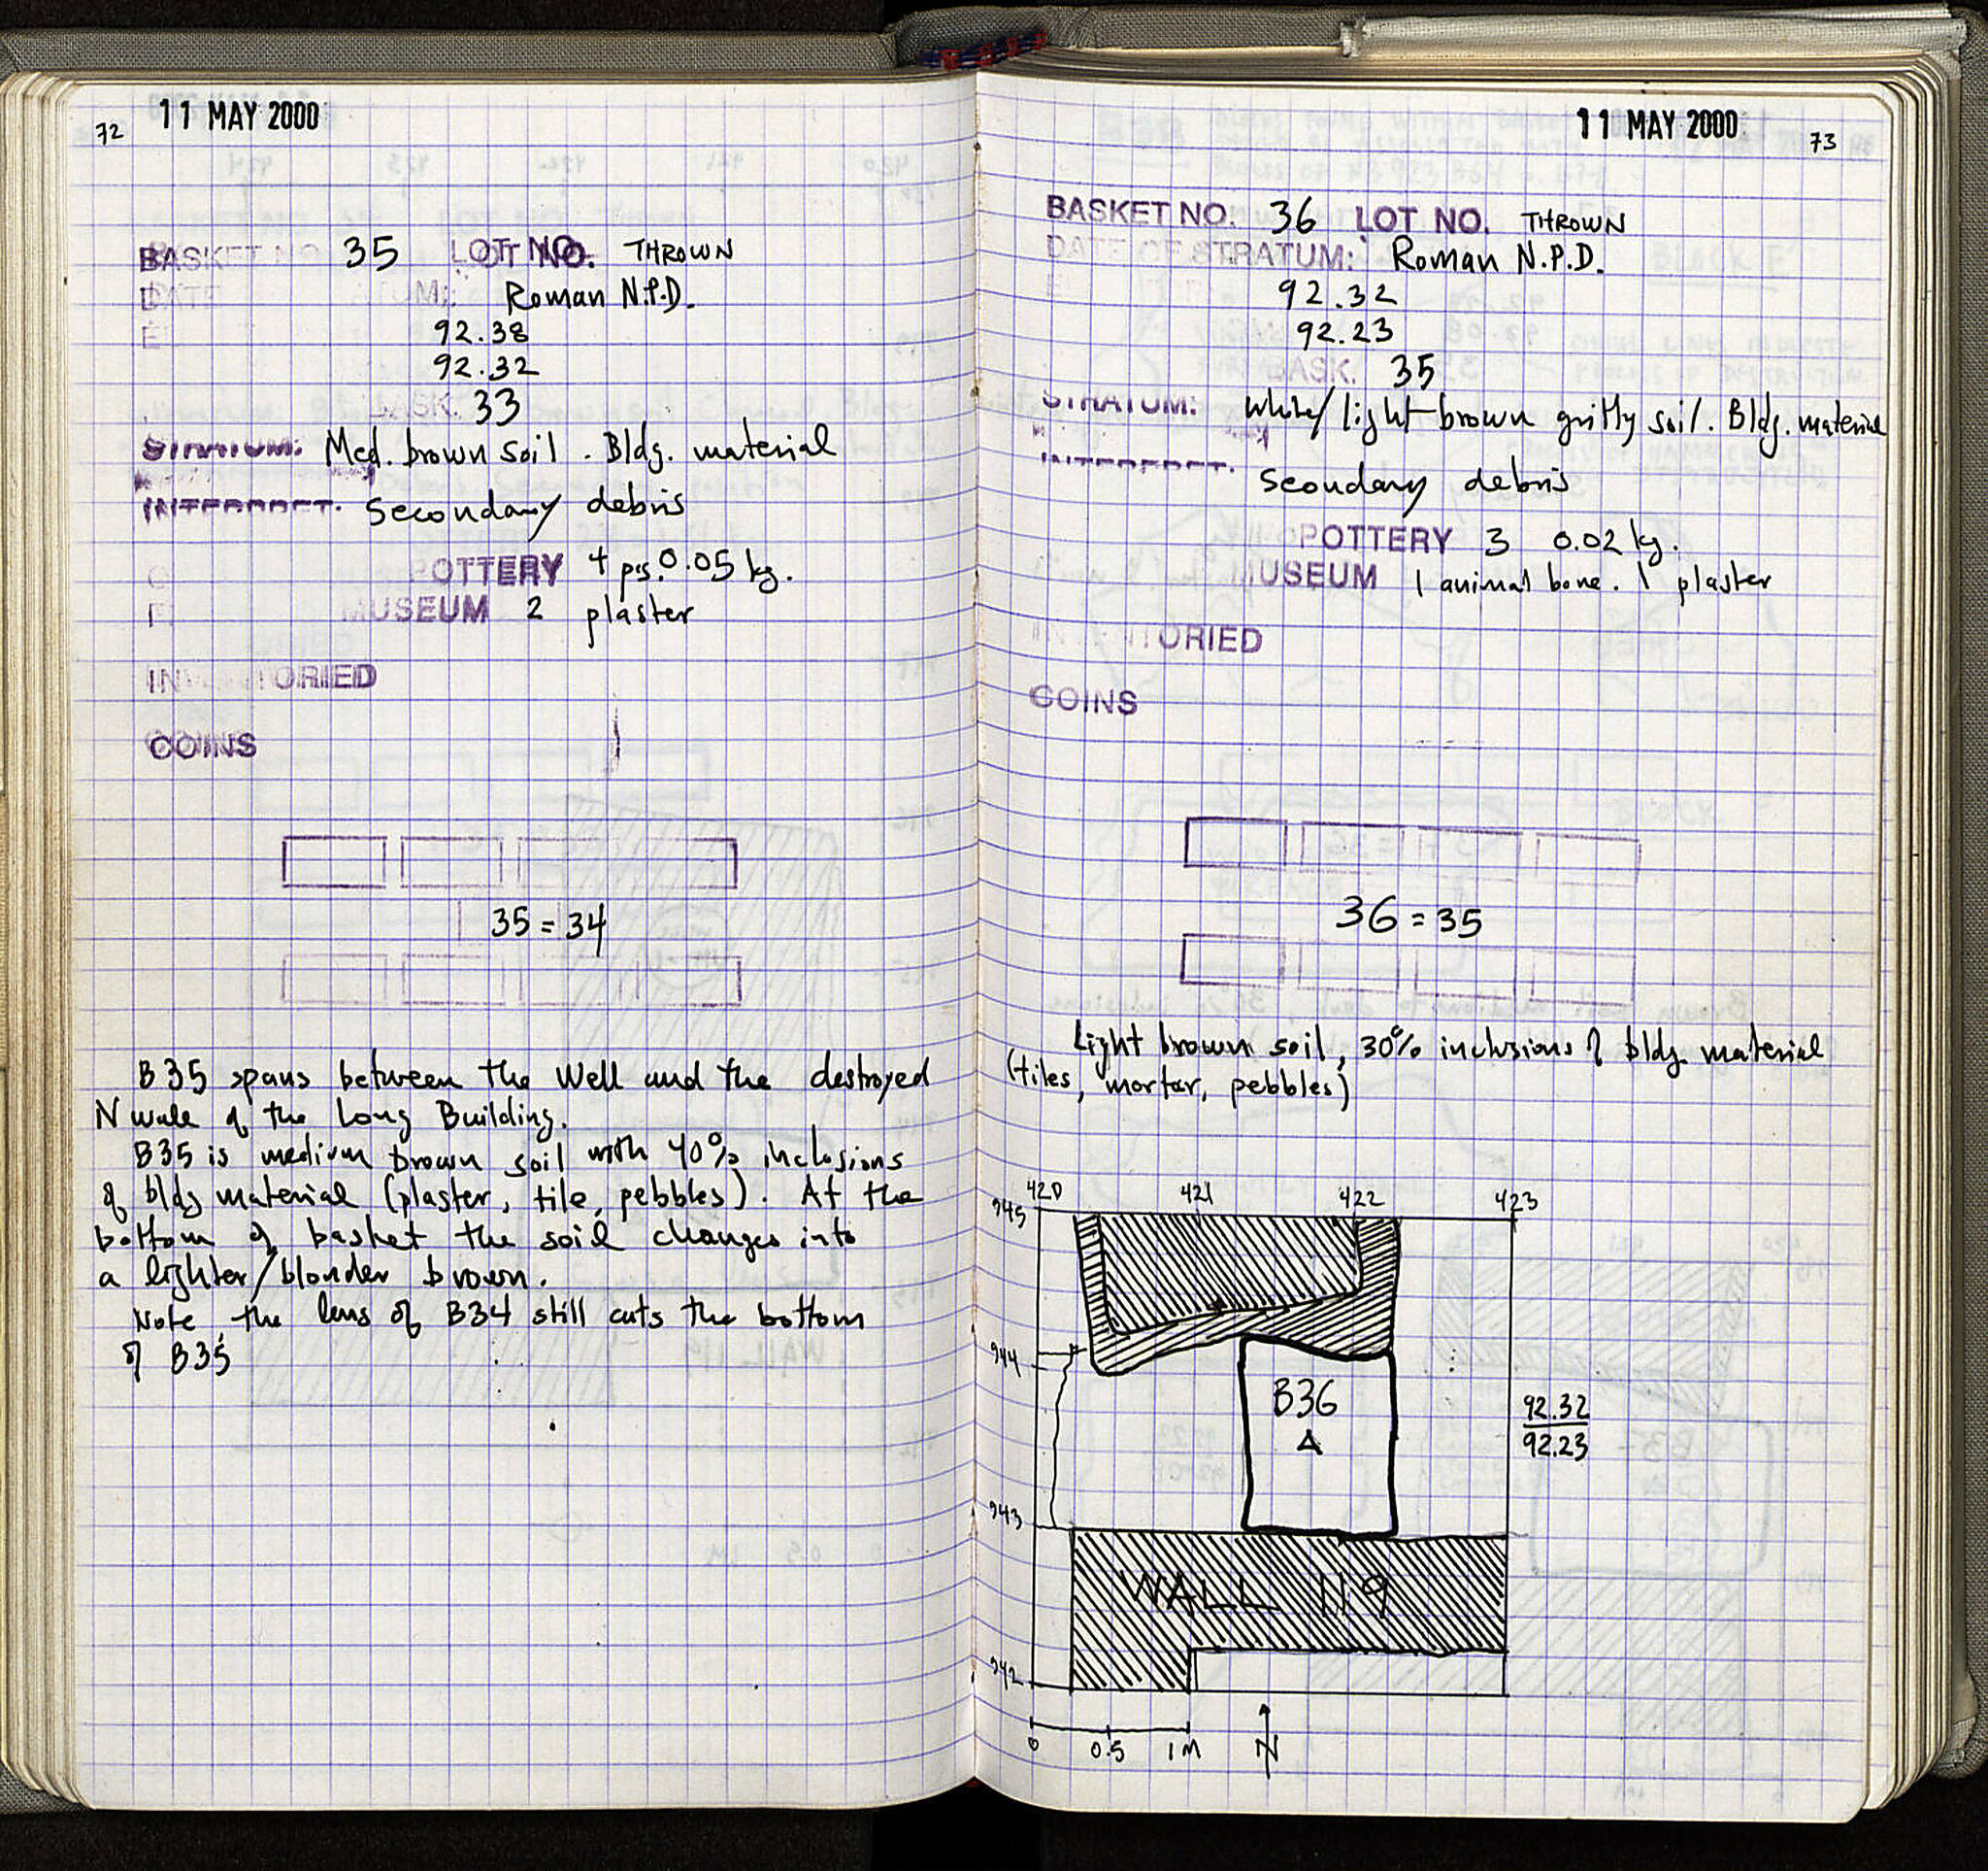 72
11 MAY 2000
BASKET NO. 35 LOT NO. THROWN
DATE TUM: Roman N.P.D.
92.38
92.32
BASK. 33
STRATUM: Med. brown soil. Bldg. material
INTERPRET. Secondary debris
POTTERY 4 pcs. 0.05 kg.
MUSEUM 2 plaster
INVENTORIED
COINS
35 = 34
B35 spans between the Well and the destroyed
N wall of the Long Building.
B35 is medium brown soil with 40% inclusions
of bldg material (plaster, tile, pebbles). At the
bottom of basket the soil changes into
a lighter/blonder brown.
Note the lens of B34 still cuts the bottom
of B35
11 MAY 2000
73
BASKET NO. 36 LOT NO. THROWN
DATE OF STRATUM: Roman N.P.D.
92.32
92.23
BASK. 35
STRATUM: White/light brown gritty soil. Bldg. material
INTERPRET. Secondary debris
POTTERY 3 0.02 kg.
MUSEUM 1 animal bone. 1 plaster
INVENTORIED
COINS
36 = 35
Light brown soil, 30% inclusions of bldg. material
(tiles, mortar, pebbles)
420 421 422 423
945
944
B36
92.32
92.23
943
WALL 119
942
0 0.5 1M N